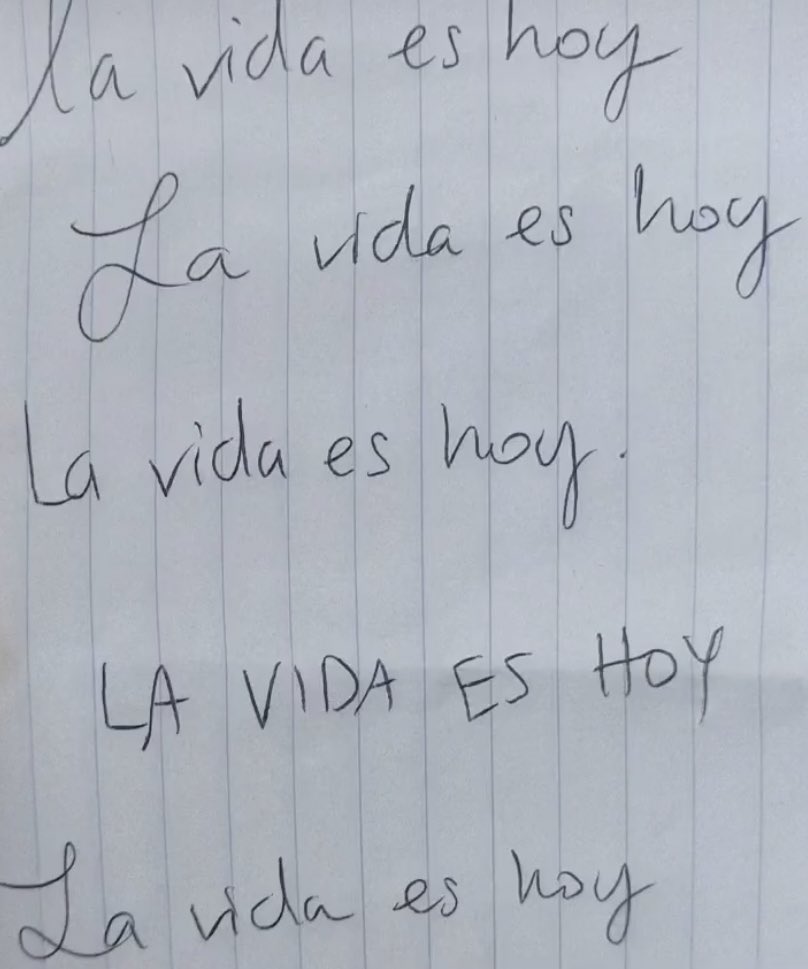 la vida es hoy
La vida es hoy
La vida es hoy.
LA VIDA ES HOY
La vida es hoy